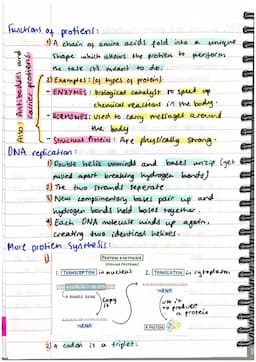 Functions of protiens:
1) A chain of amino acids fold into a unique
shape which allows the protien to perform
the task it's meant to do.
Also: Antibodies and
carrier protiens
2) Examples: (of types of protein)
- ENZYMES: biological catalyst to speed up
chemical reactions in the body.
- HORMONES: used to carry messages around
the body
- Structural Protein: Are physically strong.
DNA replication:
1) Double helix unwinds and bases unzip (get
pulled apart breaking hydrogen bonds)
2) The two strands seperate
3) New complimentary bases pair up and
hydrogen bonds hold bases together.
4) Each DNA molecule winds up again,
creating two identical helixes.
More protien synthesis:
1)
PROTEIN SYNTHESIS
(MAKING PROTEINS)
1. TRANSCRIPTION in nucleus
2. TRANSLATION in cytoplasm
A SINGLE GENE
copy it
"mRNA"
"mRNA"
use it
to produce
a protein
A PROTEIN
2) A codon is a triplet.